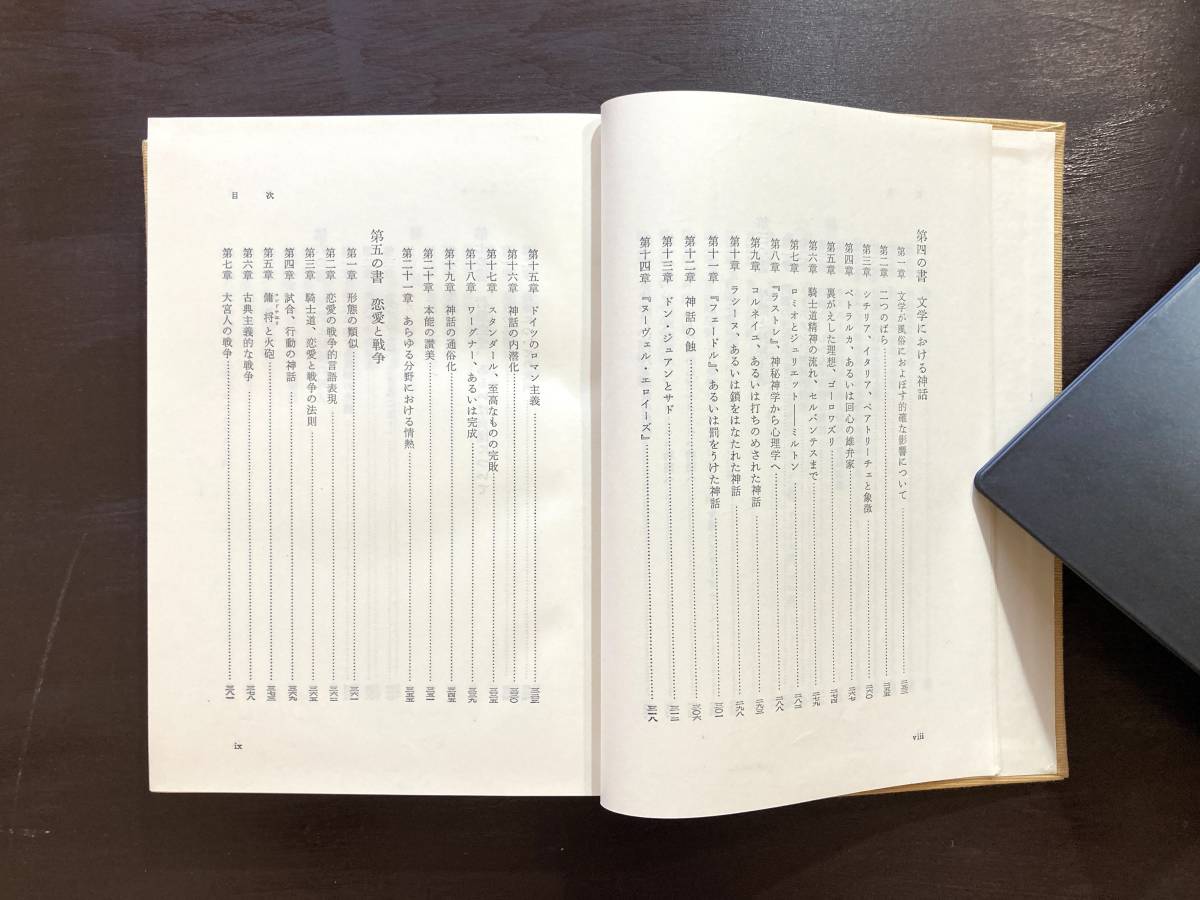 第四の書 文学における神話
第一章 文学が風俗におよぼす的確な影響について
第二章 二つのばら
第三章 シチリア、イタリア、ベアトリーチェと象徴
第四章 ペトラルカ、あるいは回心の雄弁家
第五章 裏がえした理想、ゴーロワズリ
第六章 騎士道精神の流れ、セルバンテスまで
第七章 ロミオとジュリエット――ミルトン
第八章 『ラストレ』、神秘神学から心理学へ
第九章 コルネイユ、あるいは打ちのめされた神話
第十章 ラシーヌ、あるいは鎖をはなたれた神話
第十一章 『フェードル』、あるいは罰をうけた神話 三〇一
第十二章 神話の蝕 三〇六
第十三章 ドン・ジュアンとサド 三一二
第十四章 『ヌーヴェル・エロイーズ』 三一八
viii
目次
第十五章 ドイツのロマン主義
第十六章 神話の内潜化
第十七章 スタンダール、至高なものの完敗
第十八章 ワーグナー、あるいは完成
第十九章 神話の通俗化
第二十章 本能の讃美
第二十一章 あらゆる分野における情熱
第五の書 恋愛と戦争
第一章 形態の類似 三六一
第二章 恋愛の戦争的言語表現
第三章 騎士道、恋愛と戦争の法則 三六五
第四章 試合、行動の神話 三六九
第五章 傭将と火砲
第六章 古典主義的な戦争
第七章 大宮人の戦争 三八一
ix